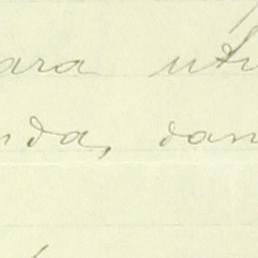 ara uti
nda, dan